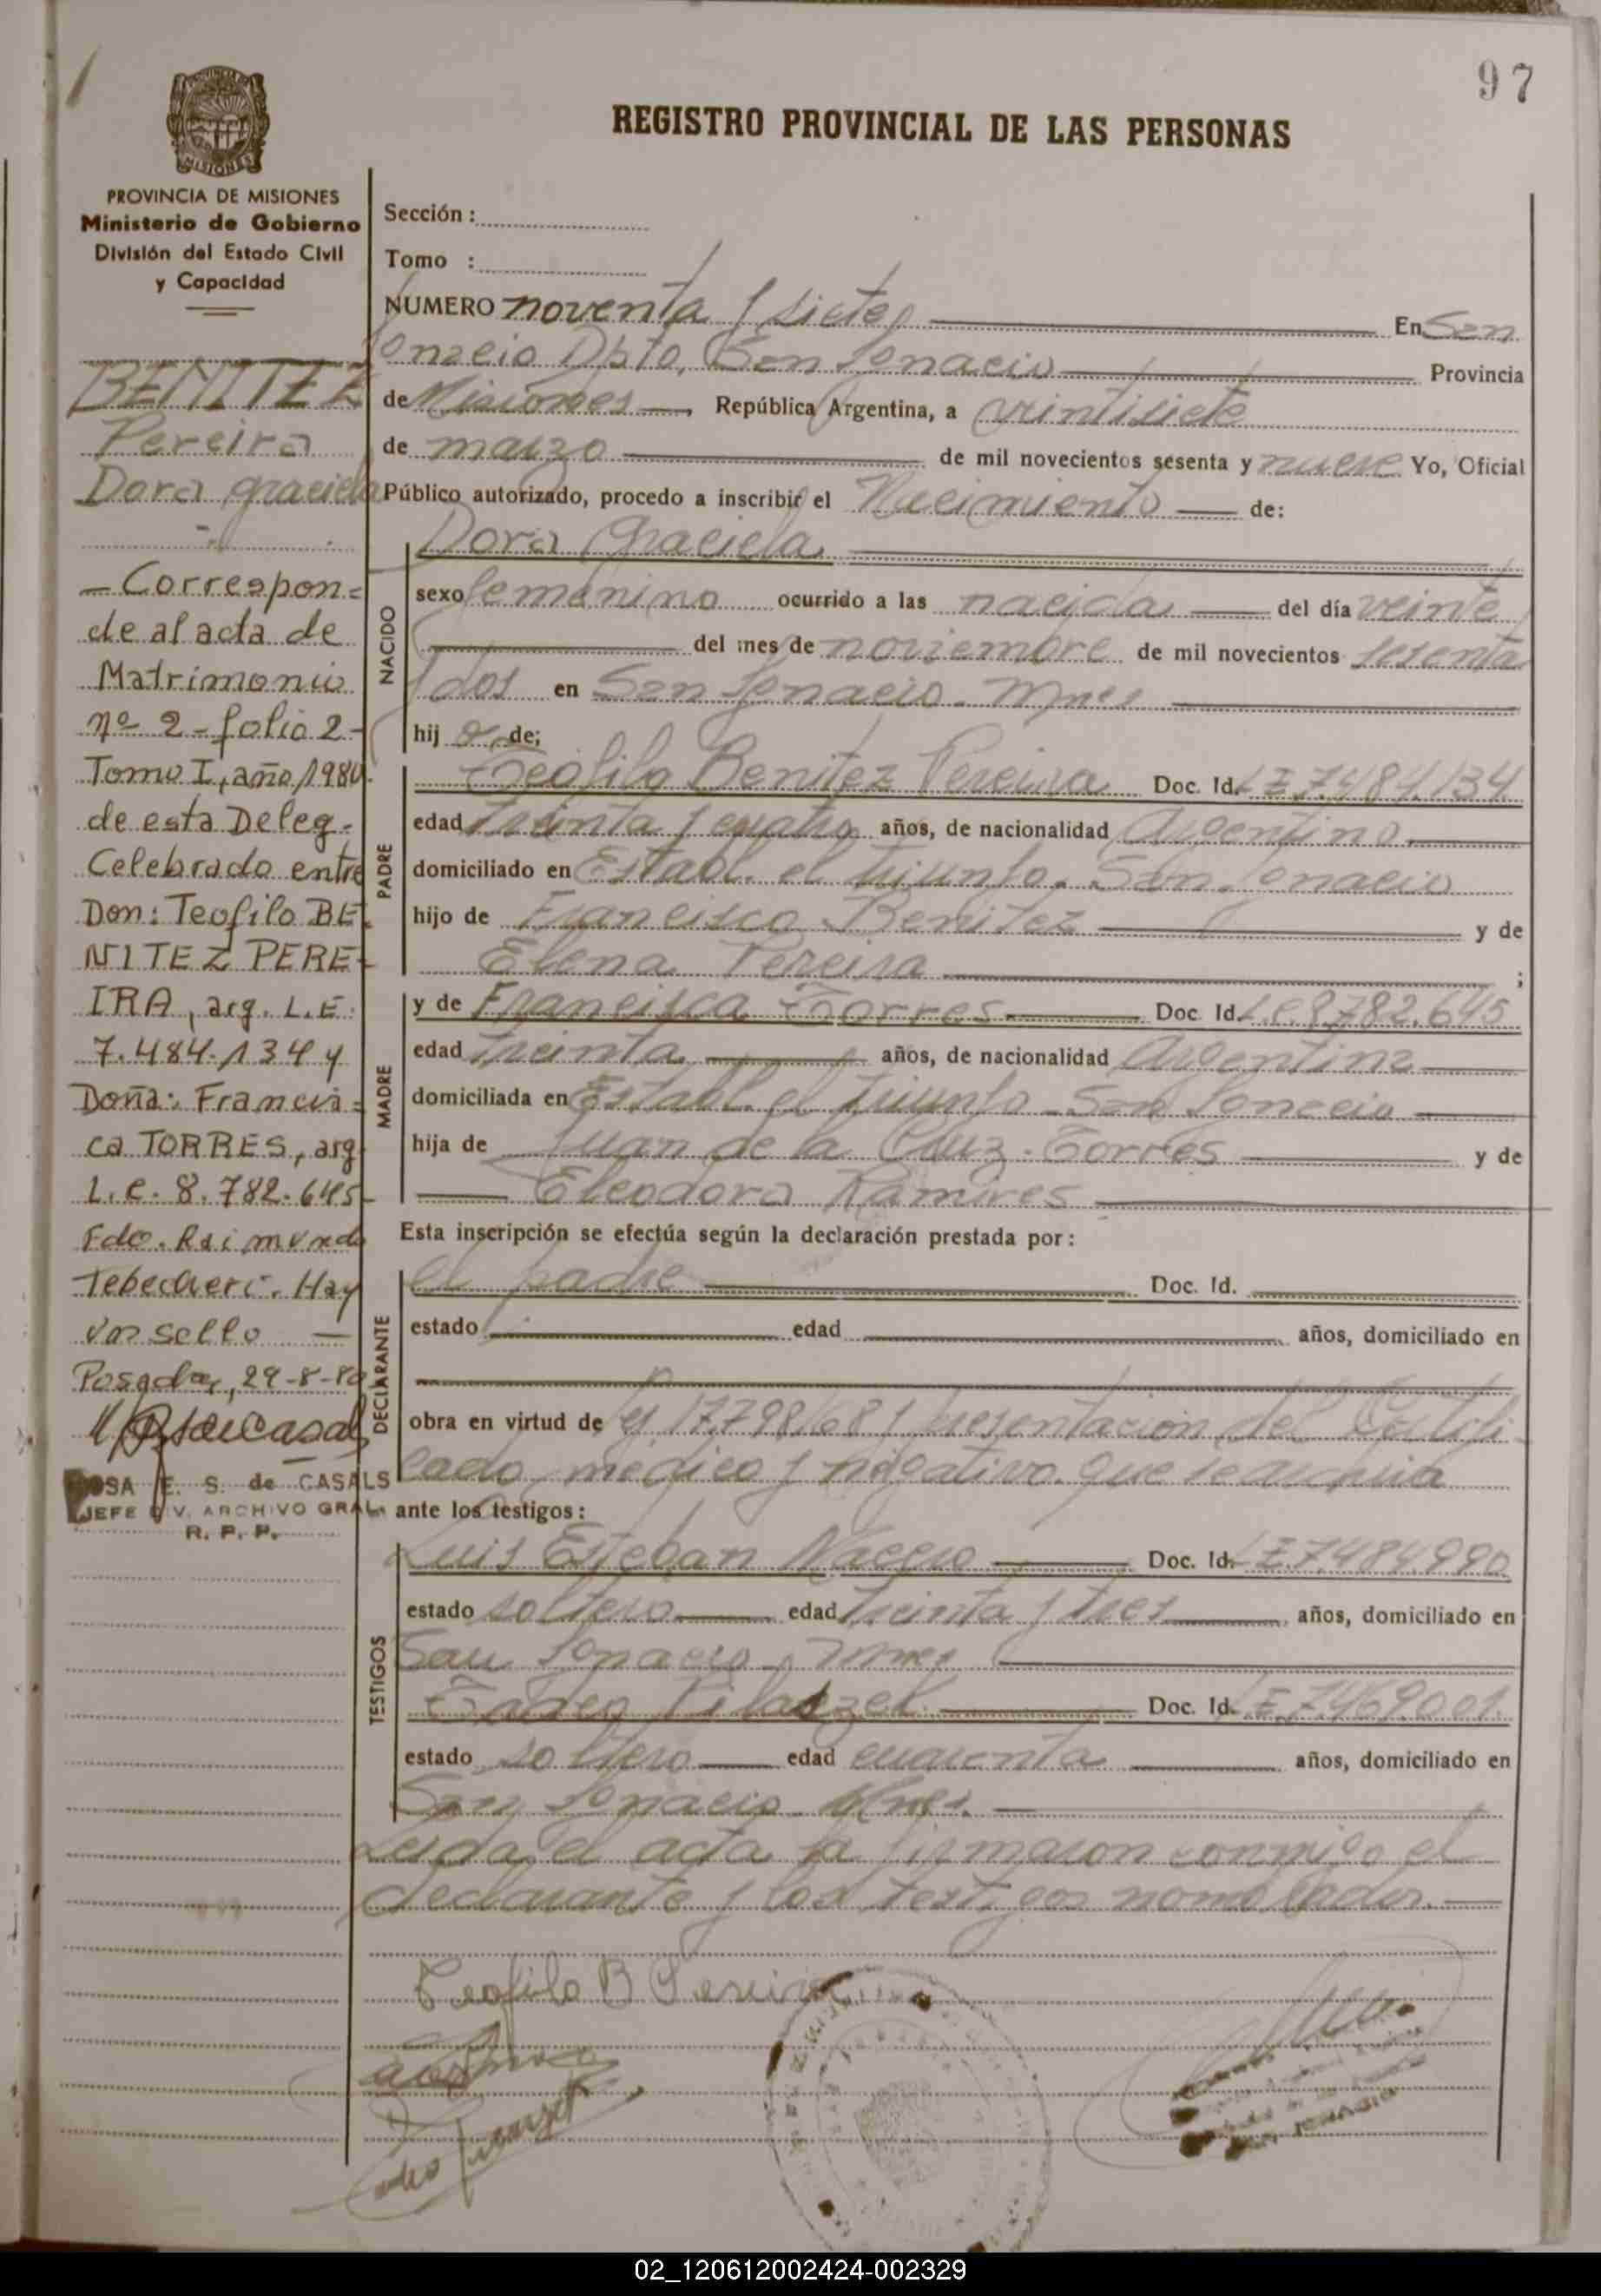 97
REGISTRO PROVINCIAL DE LAS PERSONAS
MISIONES
PROVINCIA DE MISIONES
Ministerio de Gobierno
División del Estado Civil
y Capacidad
BENITEZ
Pereira
Dora Graciela
— Correspon=
de al acta de
Matrimonio
nº 2 - folio 2-
Tomo I, año 1980.
de esta Deleg.
Celebrado entre
Don: Teofilo BE-
NITEZ PERE-
IRA, arg. L.E.
7.484.134 y
Doña: Francis=
ca TORRES, arg
L.e. 8.782.645-
Fdo. Raimundo
Hay
un sello —
Posadas, 29-8-80
ROSA E. S. de CASALS
JEFE DIV. ARCHIVO GRAL.
R. P. P.
Sección :
Tomo :
NUMERO noventa y siete En San
Ignacio Dpto. San Ignacio Provincia
de Misiones República Argentina, a veintisiete
de marzo de mil novecientos sesenta y nueve Yo, Oficial
Público autorizado, procedo a inscribir el Nacimiento de:
NACIDO
Dora Graciela
sexo femenino ocurrido a las nacida del día veinte
del mes de noviembre de mil novecientos sesenta
y dos en San Ignacio - Mnes
hij a de;
PADRE
Teofilo Benitez Pereira Doc. Id. L E 7.484.134
edad treinta y cuatro años, de nacionalidad Argentino
domiciliado en Establ. el triunfo. San Ignacio
hijo de Francisco Benitez y de
Elena Pereira ;
MADRE
y de Francisca Torres Doc. Id. L.e.8.782.645
edad treinta años, de nacionalidad Argentina
domiciliada en Establ. el triunfo - San Ignacio
hija de Juan de la Cruz Torres y de
Eleodora Ramires
Esta inscripción se efectúa según la declaración prestada por :
DECLARANTE
el padre Doc. Id.
estado edad años, domiciliado en
obra en virtud de ley 17.798/68 y presentacion del Certifi-
cado, medico y negativo que se archiva
ante los testigos :
TESTIGOS
Luis Esteban Doc. Id. L E 7.484.990
estado soltero edad treinta y tres años, domiciliado en
San Ignacio - Mnes
Tadeo Doc. Id. L E 7.469.001.
estado soltero edad cuarenta años, domiciliado en
San Ignacio - Mnes.
Leida el acta la firmaron conmigo el
declarante y los testigos nombrados.
Teofilo B Pereira
IGNACIO
02_120612002424-002329